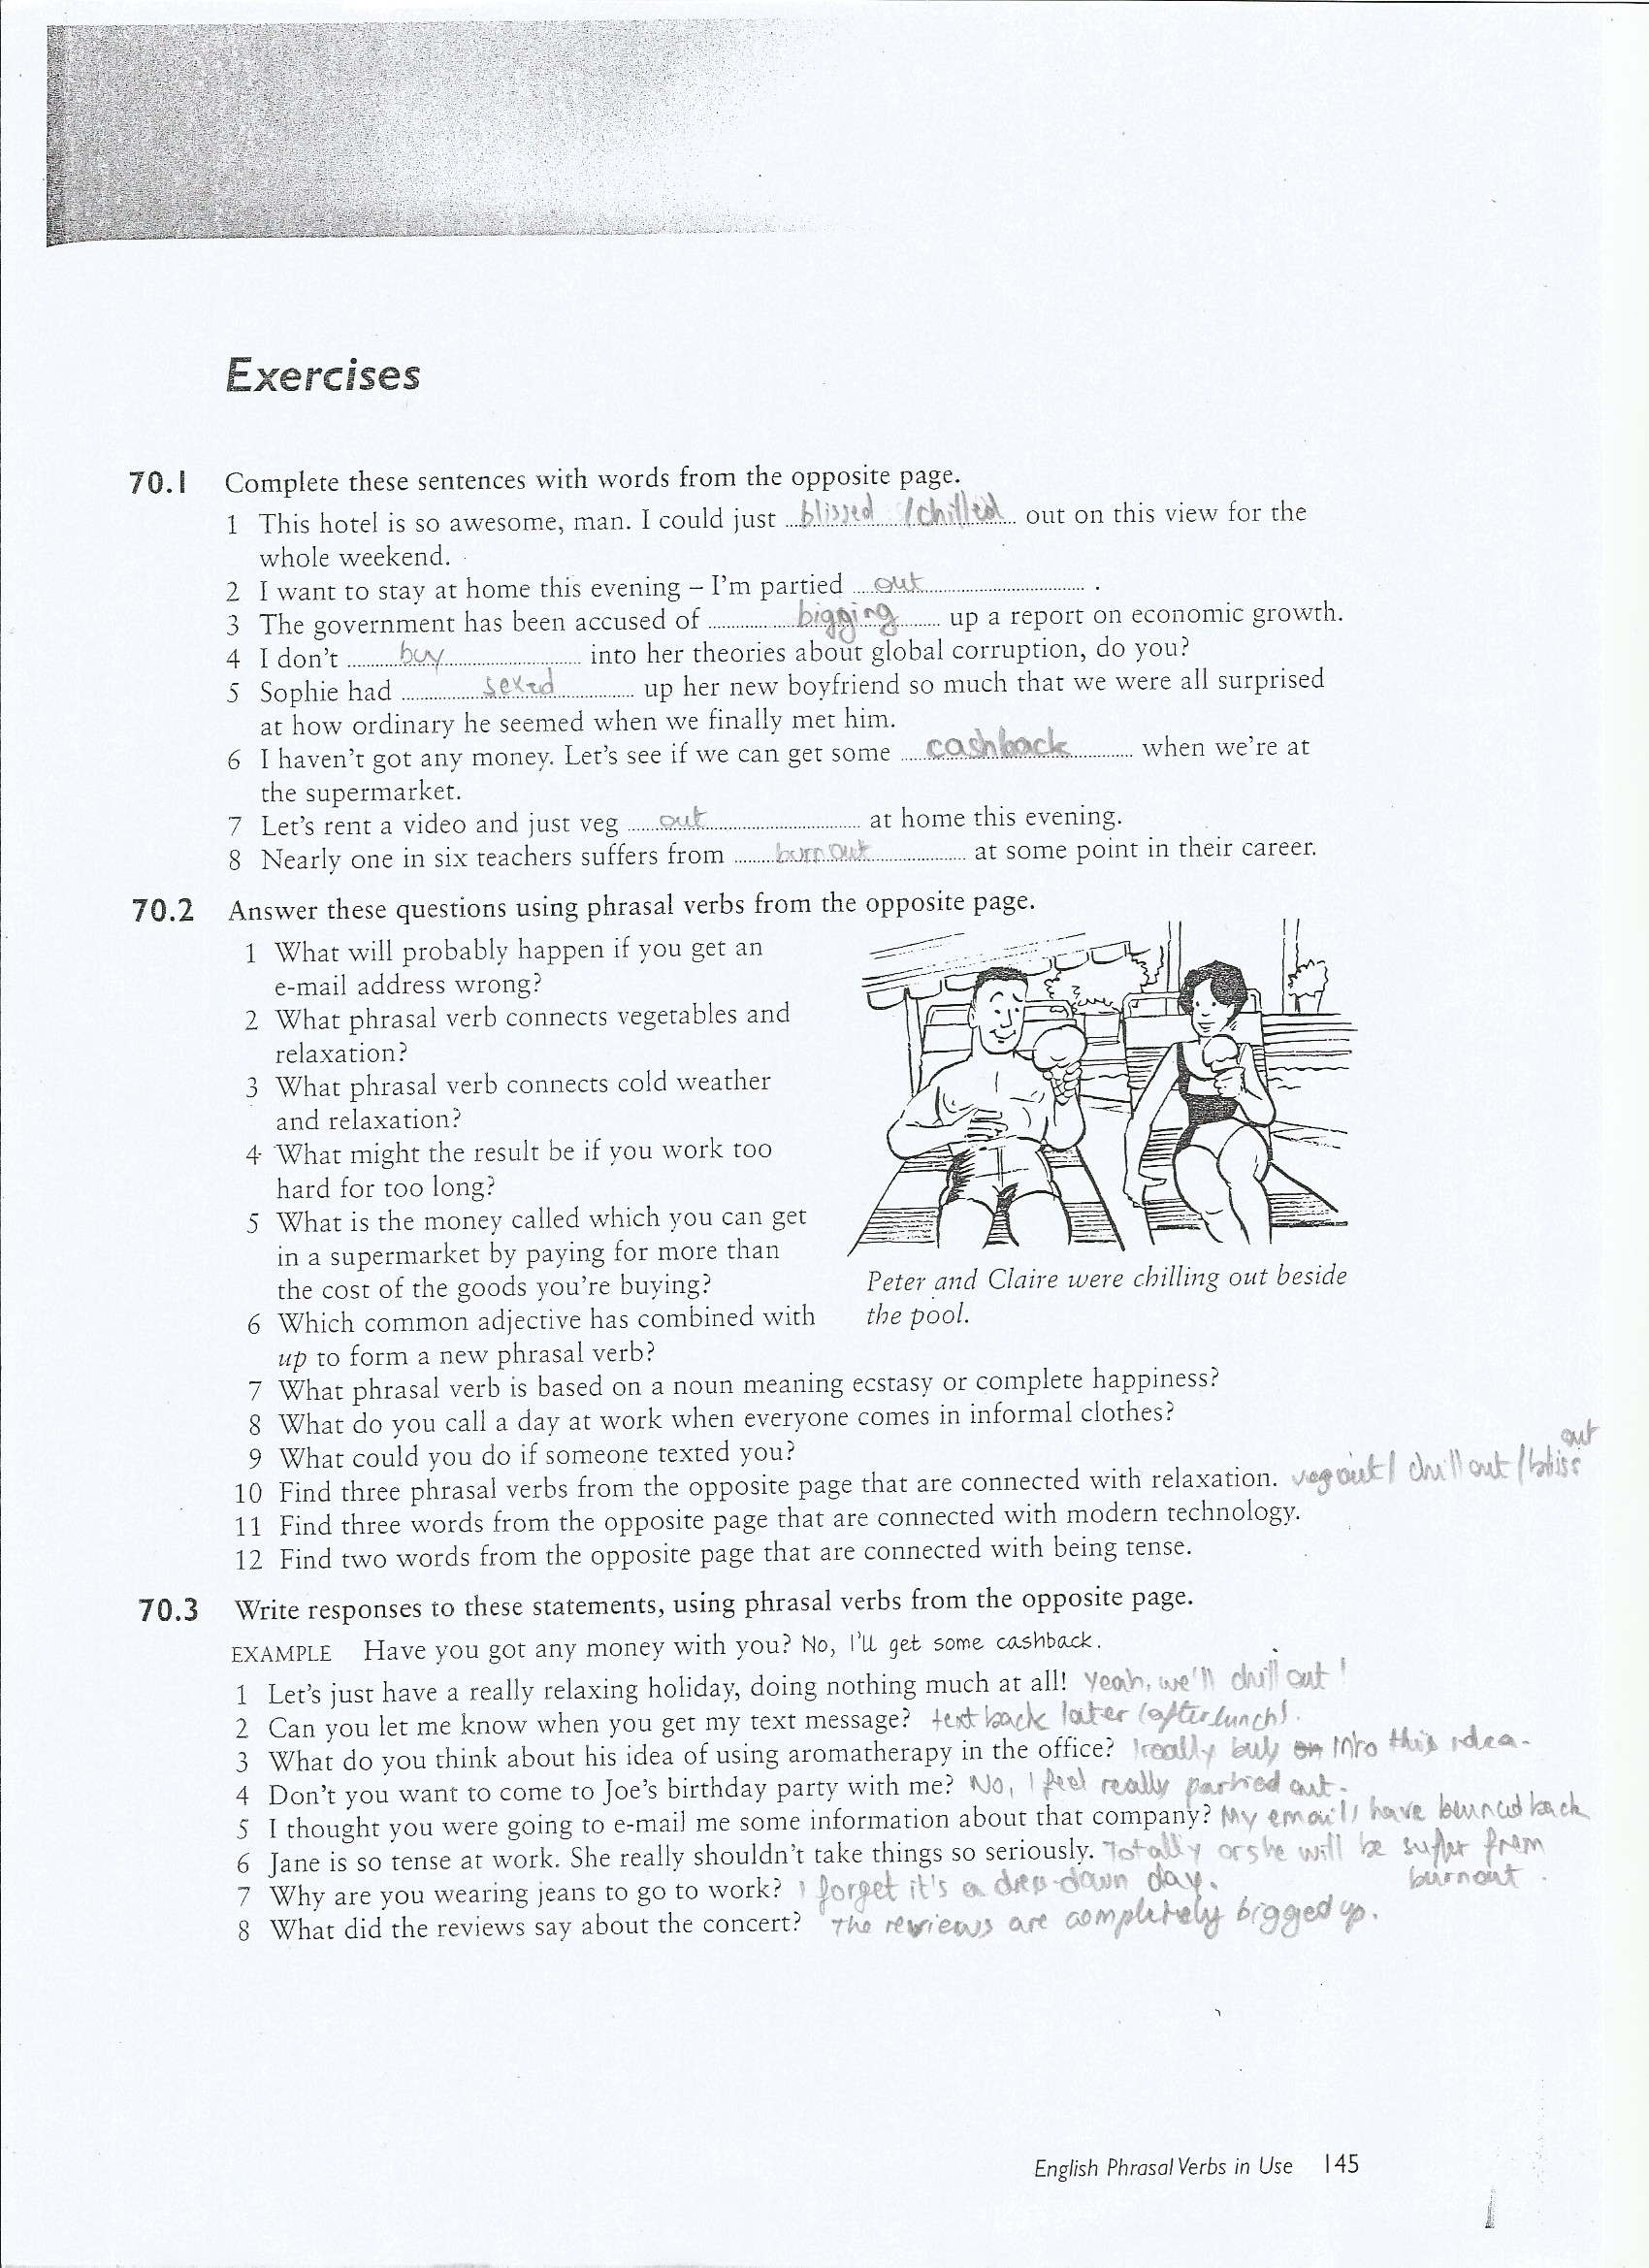 Exercises
70.1 Complete these sentences with words from the opposite page.
1 This hotel is so awesome, man. I could just blissed / chilled out on this view for the
whole weekend.
2 I want to stay at home this evening – I'm partied out .
3 The government has been accused of bigging up a report on economic growth.
4 I don't buy into her theories about global corruption, do you?
5 Sophie had sexed up her new boyfriend so much that we were all surprised
at how ordinary he seemed when we finally met him.
6 I haven't got any money. Let's see if we can get some cashback when we're at
the supermarket.
7 Let's rent a video and just veg out at home this evening.
8 Nearly one in six teachers suffers from burnout at some point in their career.
70.2 Answer these questions using phrasal verbs from the opposite page.
1 What will probably happen if you get an
e-mail address wrong?
2 What phrasal verb connects vegetables and
relaxation?
3 What phrasal verb connects cold weather
and relaxation?
4 What might the result be if you work too
hard for too long?
5 What is the money called which you can get
in a supermarket by paying for more than
the cost of the goods you're buying?
6 Which common adjective has combined with
up to form a new phrasal verb?
Peter and Claire were chilling out beside
the pool.
7 What phrasal verb is based on a noun meaning ecstasy or complete happiness?
8 What do you call a day at work when everyone comes in informal clothes?
9 What could you do if someone texted you?
10 Find three phrasal verbs from the opposite page that are connected with relaxation. veg out / chill out / bliss out
11 Find three words from the opposite page that are connected with modern technology.
12 Find two words from the opposite page that are connected with being tense.
70.3 Write responses to these statements, using phrasal verbs from the opposite page.
EXAMPLE Have you got any money with you? No, I'll get some cashback.
1 Let's just have a really relaxing holiday, doing nothing much at all! Yeah, we'll chill out!
2 Can you let me know when you get my text message? text back later (after lunch).
3 What do you think about his idea of using aromatherapy in the office? I really buy on into this idea.
4 Don't you want to come to Joe's birthday party with me? No, I feel really partied out.
5 I thought you were going to e-mail me some information about that company? My emails have bounced back
6 Jane is so tense at work. She really shouldn't take things so seriously. Totally or she will be suffer from
burnout.
7 Why are you wearing jeans to go to work? I forget it's a dress-down day.
8 What did the reviews say about the concert? The reviews are completely bigged up.
English Phrasal Verbs in Use 145